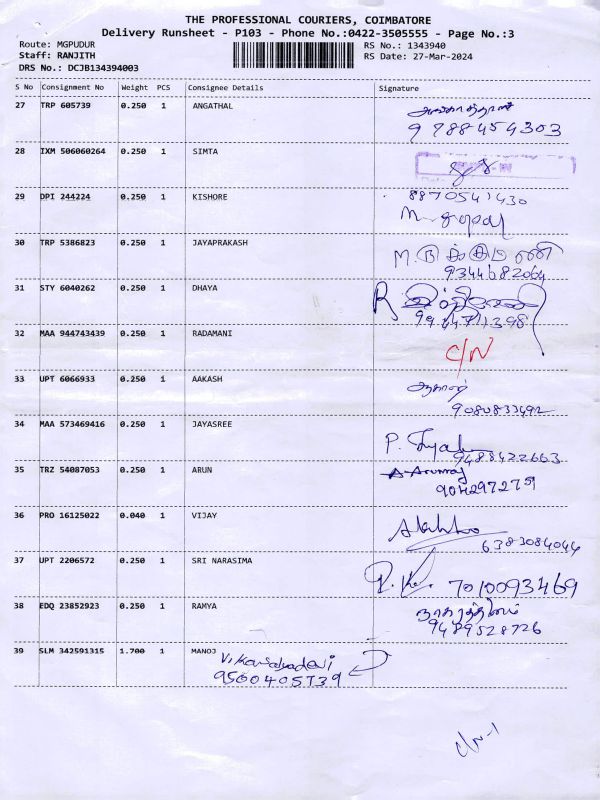 THE PROFESSIONAL COURIERS, COIMBATORE
Delivery Runsheet - P103 - Phone No.:0422-3505555 - Page No.:3
Route: MGPUDUR
Staff: RANJITH
DRS No.: DCJB134394003
RS No.: 1343940
RS Date: 27-Mar-2024
S No Consignment No Weight PCS Consignee Details Signature
27 TRP 605739 0.250 1 ANGATHAL அங்காத்தாள்
9788454303
28 IXM 506060264 0.250 1 SIMTA
29 DPI 244224 0.250 1 KISHORE 8870541430
M. Gopal
30 TRP 5386823 0.250 1 JAYAPRAKASH
9344682064
31 STY 6040262 0.250 1 DHAYA R
32 MAA 944743439 0.250 1 RADAMANI C/N
33 UPT 6066933 0.250 1 AAKASH
9080833492
34 MAA 573469416 0.250 1 JAYASREE P.
9483422663
35 TRZ 54087053 0.250 1 ARUN A Arunraj
9042972759
36 PRO 16125022 0.040 1 VIJAY
6383084044
37 UPT 2206572 0.250 1 SRI NARASIMA 7010093469
38 EDQ 23852923 0.250 1 RAMYA
9489528726
39 SLM 342591315 1.700 1 MANOJ
9500405739
C/N-1